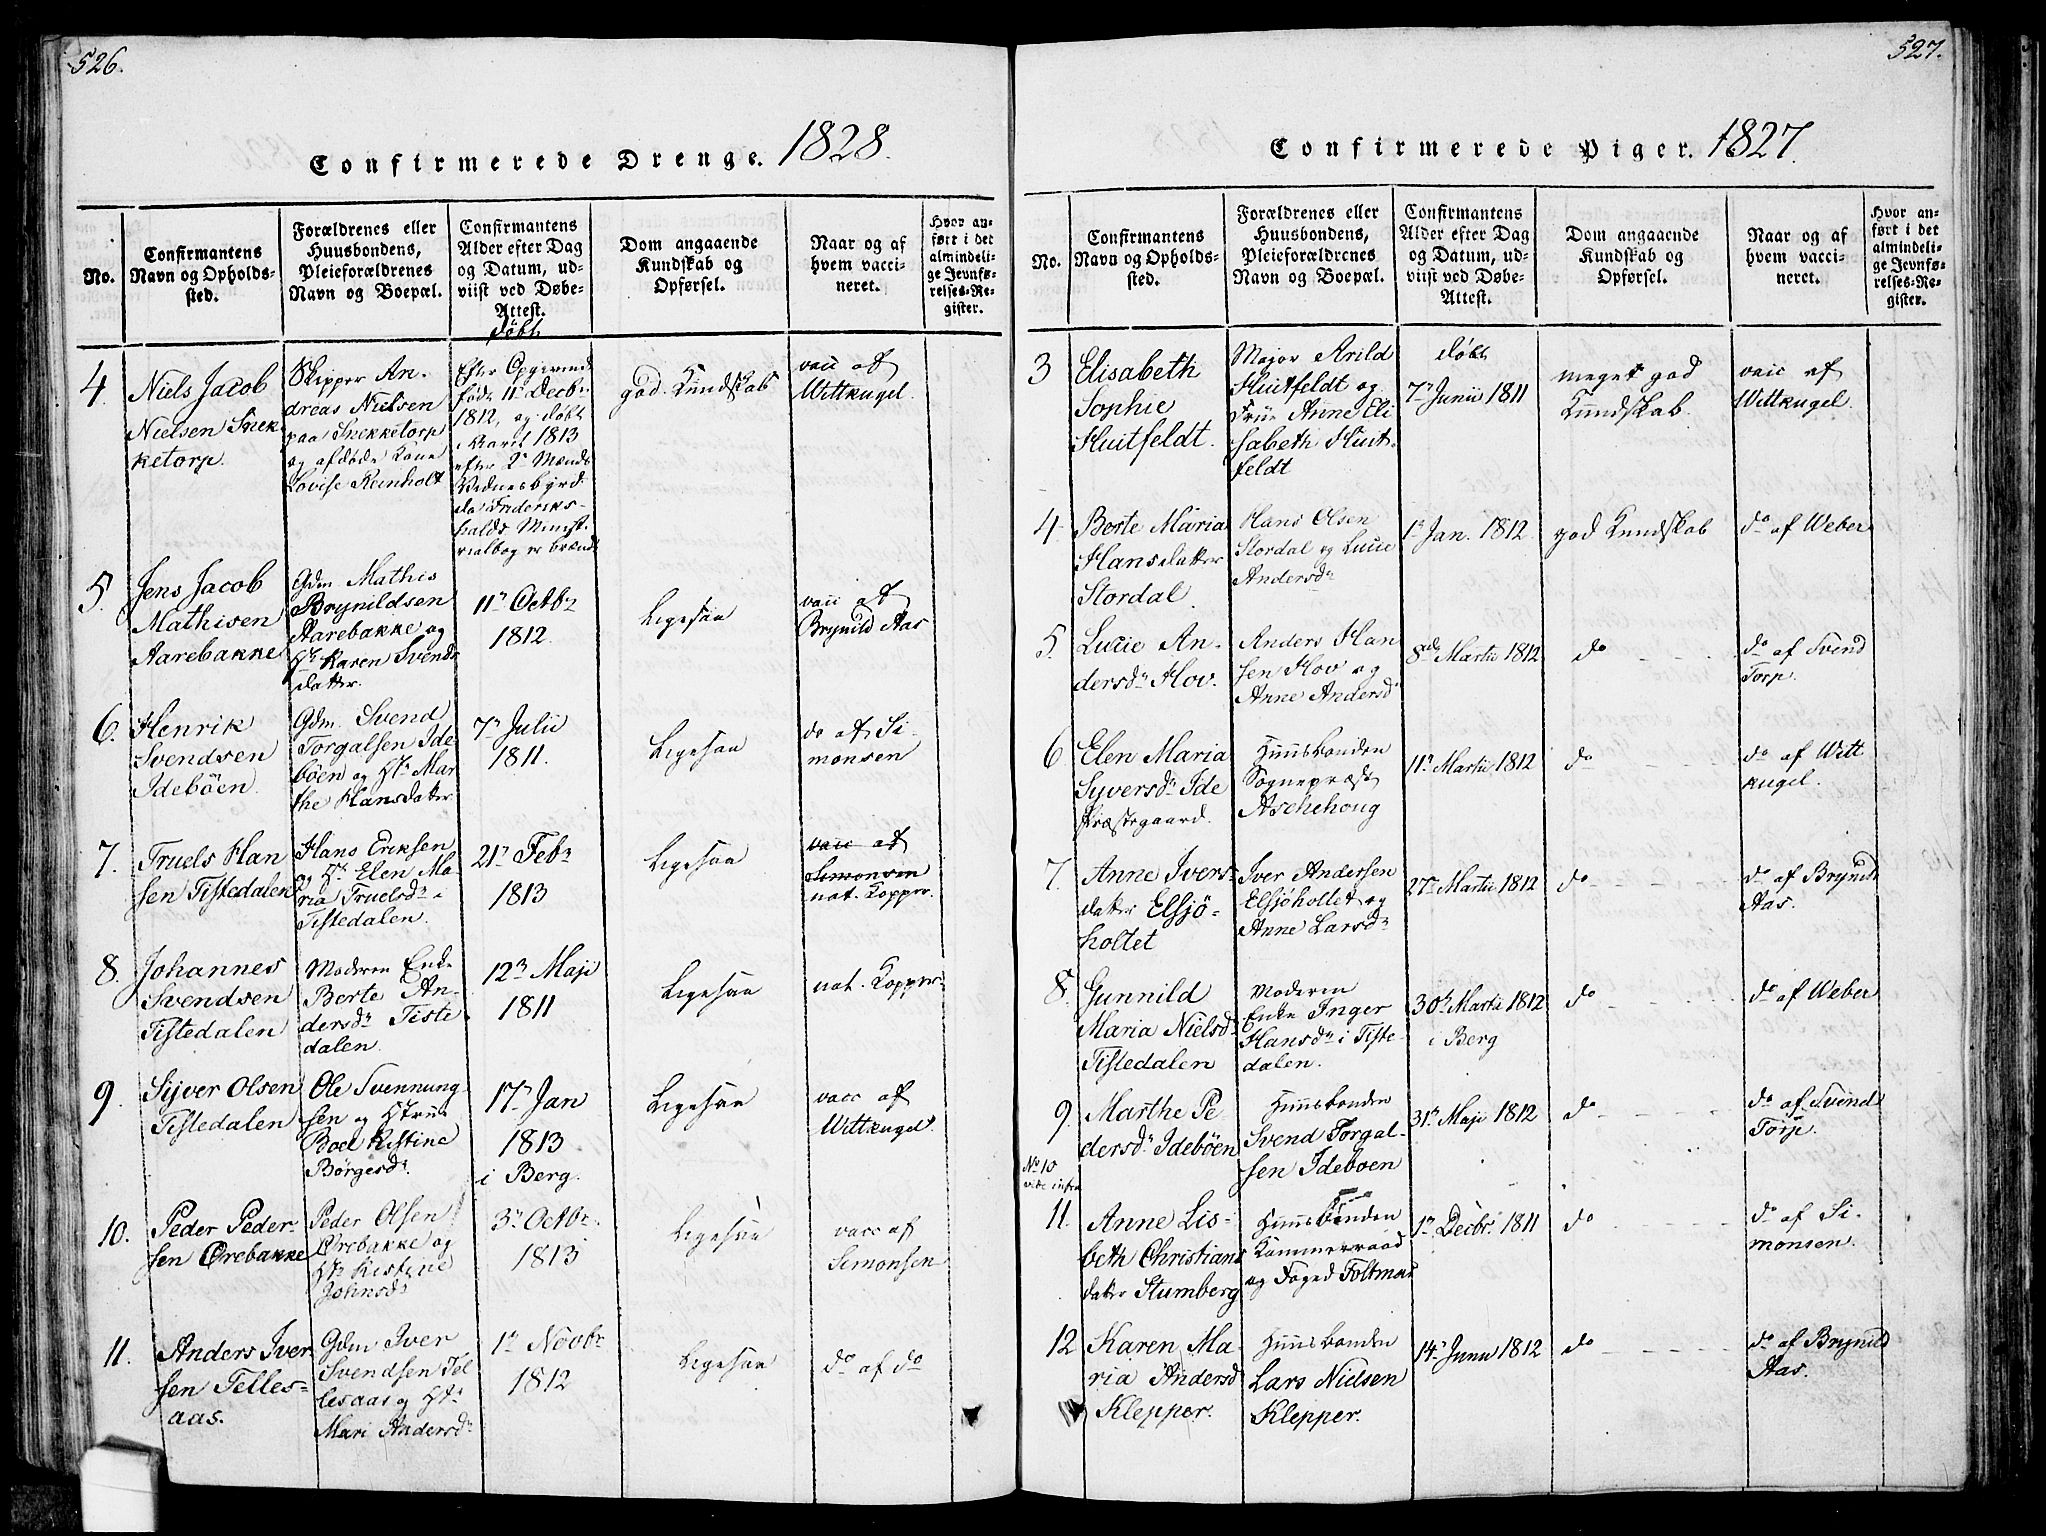 526.
Confirmerede Drenge. 1828.
No.
Confirmantens
Navn og Opholds-
sted.
Forældrenes eller
Huusbondens,
Pleieforældrenes
Navn og Boepæl.
Confirmantens
Alder efter Dag
og Datum, ud-
viist ved Døbe-
Attest.
Dom angaaende
Kundskab og
Opførsel.
Naar og af
hvem vacci-
neret.
Hvor an-
ført i det
almindeli-
ge Jevnfø-
relses-Re-
gister.
døbt
4.
Niels Jacob
Nielsen Snek
ketorp.
Skipper An-
dreas Nielsen
paa Snekketorp
og afdøde Kone
Lovise Reinholt
Efter Opgivende
født 11te Decbr
1812, og døbt
i Karet 1813
efter 2de Mænds
Vidnesbyrd
da Frideriks-
halds Minist.
rialbog er brændt
god Kundskab
vacc af
Wittkugel.
5.
Jens Jacob
Mathisen
Aarebakke
Gdm Mathis
Brynildsen
Aarebakke og
H. Karen Svends
datter.
11te Octbr
1812.
Ligesaa
vacc af
Brynild Aas
6.
Henrik
Svendsen
Idebøen.
Gdm. Svend
Torgalsen Ide-
bøen og H. Mar
the Hansdatter
7de Julii
1811.
Ligesaa
do af Si-
monsen
7.
Truels Han
sen Tistedalen
Hans Eriksen
og H. Elen Ma
ria Truelsdr i
Tistedalen.
21de Febr
1813
Ligesaa
vacc af
Simonsen
nat. Kopper.
8.
Johannes
Svendsen
Tistedalen
Moderen Enke
Berte An-
dersdr Tiste
dalen.
12te Maji
1811
Ligesaa
nat. Kopper
9.
Syver Olsen
Tistedalen
Ole Svennung-
sen og Hstrue
Boel Kistine
Børgesdr.
17de Jan
1813
i Berg.
Ligesaa
vacc af
Wittkugel.
10.
Peder Peder-
sen Ørebakke
Peder Olsen
Ørebakke og
H. Kistine
Johnsdr
3de Octbr.
1813
Ligesaa
vacc af
Simonsen
11.
Anders Iver
sen Telles-
aas.
Gdm Iver
Svendsen Tel
lesaas og H.
Mari Andersdr
1te Novbr
1812
Ligesaa
do af do
527.
Confirmerede Piger. 1827.
No.
Confirmantens
Navn og Opholds-
sted.
Forældrenes eller
Huusbondens,
Pleieforældrenes
Navn og Boepæl.
Confirmantens
Alder efter Dag
og Datum, ud-
viist ved Døbe-
Attest.
Dom angaaende
Kundskab og
Opførsel.
Naar og af
hvem vacci-
neret.
Hvor an-
ført i det
almindeli-
ge Jevnfø-
relses-Re-
gister.
3
Elisabeth
Sophie
Huitfeldt.
Major Arild
Huitfeldt og
Frue Anne Eli
sabeth Huit-
feldt
døbt
7de Junii 1811
meget god
Kundskab.
vacc af
Wittkugel.
4.
Berte Maria
Hansdatter
Stordal.
Hans Olsen
Stordal og Lucie
Andersdr
1te Jan. 1812.
god Kundskab
do af Weber
5.
Lucie An-
dersdr Hov.
Anders Han
sen Hov og
Anne Andersdr
8de Martii 1812
do
do af Svend
Torp.
6
Elen Maria
Syversdr Ide
Præstegaard.
Huusbonden
Sognepræst
Aschehoug
11te Martii 1812
do
do af Witt
kugel.
7.
Anne Ivers-
datter Elsjø-
holtet
Iver Andersen
Elsjøholtet og
Anne Larsdr
27de Martii 1812
do
do af Brynild
Aas.
8.
Gunnild
Maria Nielsdr
Tistedalen
Moderen
Enke Inger
Hansdr i Tiste-
dalen.
30te Martii 1812
i Berg
do
do af Weber
9.
Marthe Pe
dersdr Idebøen
Huusbonden
Svend Torgal-
sen Idebøen
31te Maji 1812
do
do af Svend
Torp.
No 10
vide infra
11.
Anne Lis-
beth Christians
datter Stumberg
Huusbonden
Kammerraad
og Foged Foltmar
1te Decbr. 1811
do
do af Si-
monsen.
12
Karen Ma-
ria Andersd
Klepper.
Huusbonden
Lars Nielsen
Klepper.
14de Junii 1812
do
do af Brynild
Aas.